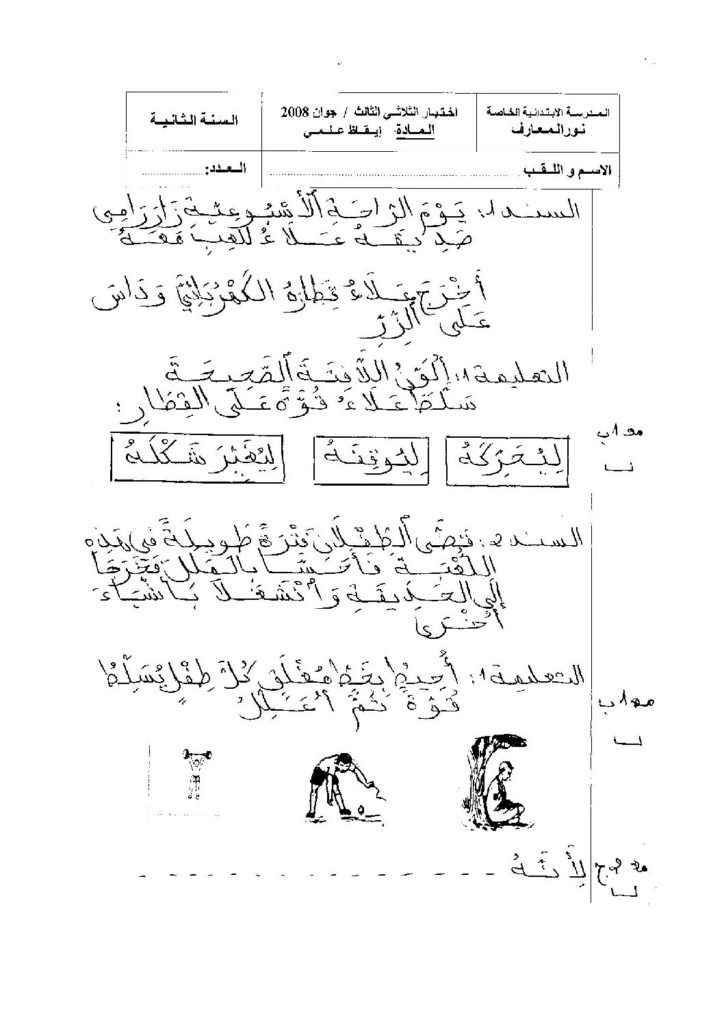 المدرسة الابتدائية الخاصة
نور المعارف
اختبار الثلاثي الثالث / جوان 2008
المادة: إيقاظ علمي
السنة الثانية
الاسم و اللقب
العدد:
السند 1: يَوْمَ الرَّاحَةِ الْأُسْبُوعِيَّةِ زَارَ رَامِي
صَدِيقَهُ عَلَاءُ لِلَّعِبِ مَعَهُ
أَخْرَجَ عَلَاءُ قِطَارَهُ الْكَهْرُبَائِيَّ وَدَاسَ
عَلَى الزِّرِّ
التعليمة 1: أُلَوِّنُ اللَّافِتَةَ الصَّحِيحَةَ
سَلَّطَ عَلَاءُ قُوَّةً عَلَى الْقِطَارِ:
لِيُحَرِّكَهُ
لِيُوقِفَهُ
لِيُغَيِّرَ شَكْلَهُ
مع 1ب
السند 2: قَضَّى الطِّفْلَانِ فَتْرَةً طَوِيلَةً فِي هَذِهِ
اللُّعْبَةِ فَأَحَسَّا بِالْمَلَلِ فَخَرَجَا
إِلَى الْحَدِيقَةِ وَانْشَغَلَا بِأَشْيَاءَ
أُخْرَى
التعليمة 1: أُحِيطُ بِخَطٍّ مُغْلَقٍ كُلَّ طِفْلٍ يُسَلِّطُ
قُوَّةً ثُمَّ أُعَلِّلُ
مع 1ب
لِأَنَّهُ
مع 2ج